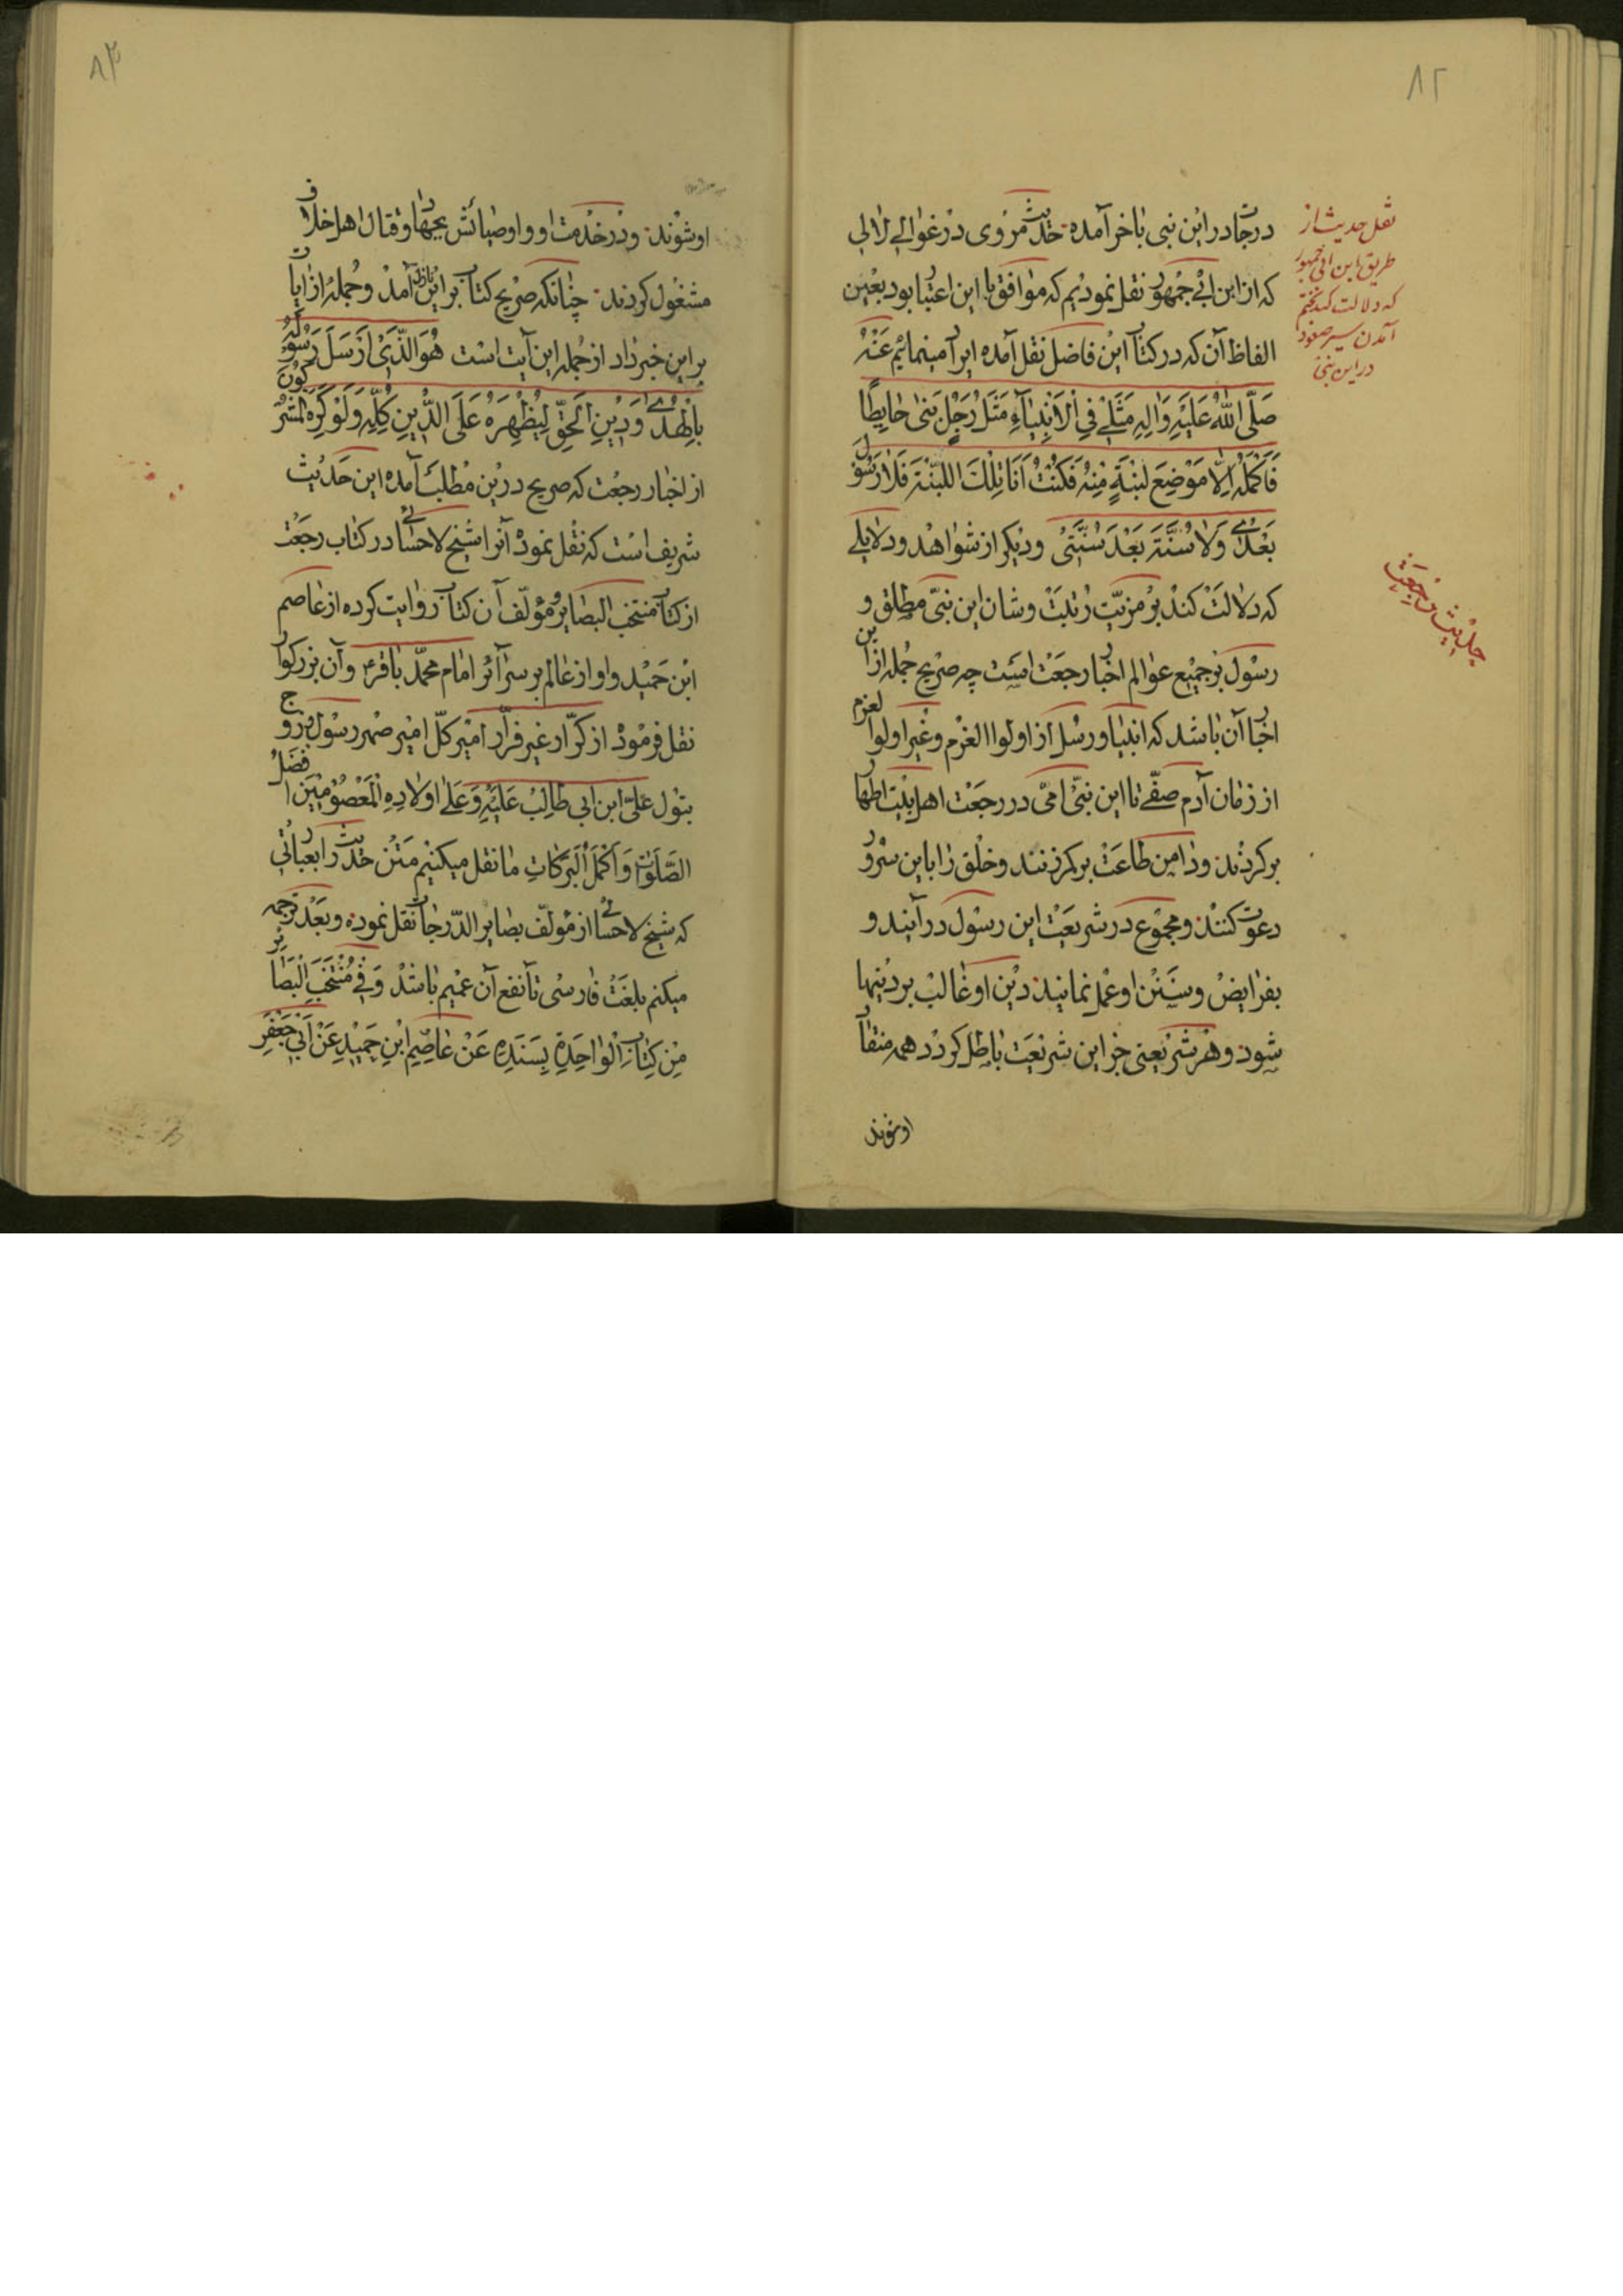 ۸۲
درجات در این نبی باخر آمده حدیث مروی در غوالی لالی
که از ابن ابی جمهور نقل نمودیم که موافق با این اعتبار بود بعین
الفاظ آن که در کتاب این فاضل نقل آمده ایراد مینمائیم عَنْهُ
صَلَّی اللّٰهُ عَلَیْهِ وَالِهِ مَثَلی فِی الْاَنْبِیآءِ مَثَلُ رَجُلٍ بَنیٰ حایِطًا
فَاَکْمَلَهُ اِلّا مَوْضِعَ لَبْنَةٍ مِنْهُ فَکُنْتُ اَنَا تِلْکَ اللَّبْنَةَ فَلا رَسُولَ
بَعْدی وَلا سُنَّةَ بَعْدَ سُنَّتی ودیکر از شواهد ودلایلی
که دلالت کند بر مزیّت رتبت وشان این نبیّ مطلق و
رسول بر جمیع عوالم اخبار رجعت است چه صریح جمله از این
اخبار آن باشد که انبیا ورسل از اولوا العزم وغیر اولوا لعزم
از زمان آدم صفّی تا این نبیّ امّی در رجعت اهل بیت اطهار
برکردند ودامن طاعت برکمر زنند وخلق را باین سرور
دعوت کنند ومجموع در شریعت این رسول درآیند و
بفرایض وسنن او عمل نمایند دین او غالب بر دینها
شود وهر شریعتی جز این شریعت باطل کردد همه منقاد
اوشوند
نقل حدیث از
طریق ابن ابی جمهور
که دلالت کند بختم
آمدن سیر صعود
در این نبی
حدیث رجعت
۸۳
اوشوند ودر خدمت او واوصیائش بجهاد وقتال اهل خلاف
مشغول کردند چنانکه صریح کتاب بر این ناطق آمد وجمله از ایات
بر این خبر داد از جمله این آیت است هُوَ الَّذی اَرْسَلَ رَسُولَهُ
بِالْهُدی وَدینِ الْحَقِّ لِیُظْهِرَهُ عَلَی الدّینِ کُلِّهِ وَلَوْ کَرِهَ الْمُشْرِکُونَ
از اخبار رجعت که صریح درین مطلب آمده این حدیث
شریف است که نقل نموده آنرا شیخ لاحسائی در کتاب رجعت
از کتاب منتخب البصایر ومؤلّف آن کتاب روایت کرده از عاصم
ابن حمید واو از عالم بر سرآئر امام محمّد باقرء وآن بزرکوار
نقل فرمود از کرّار غیر فرّار امیر کلّ امیر صهر رسول زوج
بتول علیّ ابن ابی طالب عَلَیْهِ وَعَلی اولادِهِ الْمَعْصُومینَ افضَلُ
الصَّلَواتِ وَاَکْمَلُ الْبَرَکاتِ ما نقل میکنیم متن حدیث را بعباراتی
که شیخ لاحسائی از مؤلّف بصایر الدّرجات نقل نموده وبعد ترجمه
میکنم بلغت فارسی تا نفع آن عمیم باشد وَفی مُنْتَخَبِ الْبَصایِرِ
مِنْ کِتابِ الْواحِدَةِ بِسَنَدِهِ عَنْ عاصِمِ ابْنِ حَمیدٍ عَنْ اَبی جَعْفَرِ